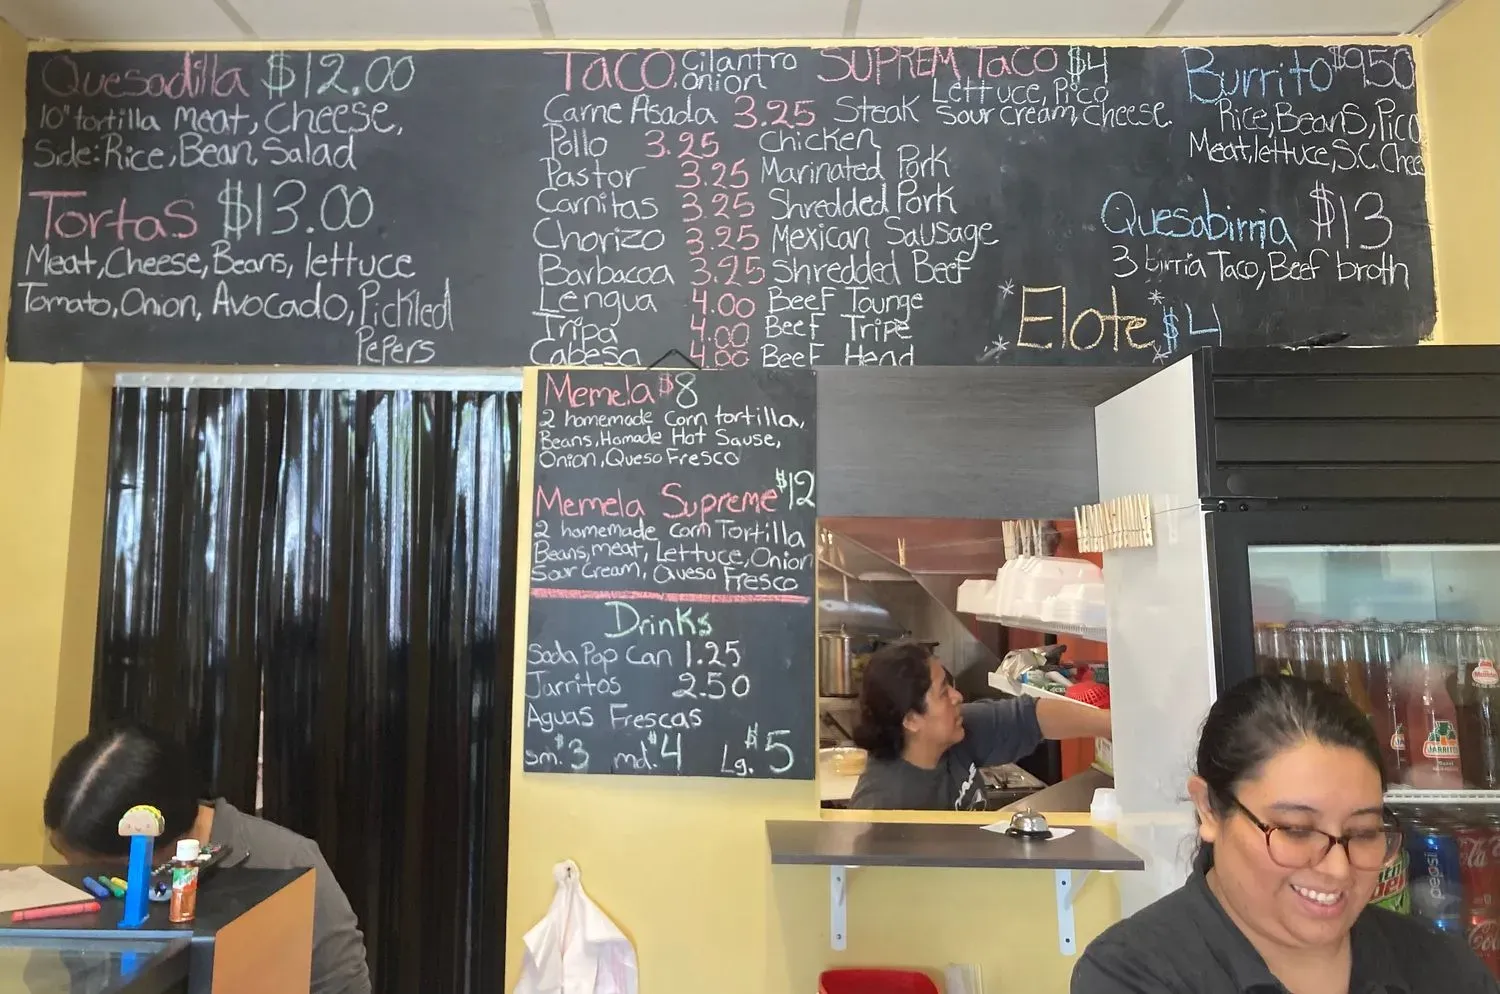 Quesadilla $12.00
10" tortilla meat, Cheese,
Side: Rice, Bean, Salad
Tortas $13.00
Meat, Cheese, Beans, lettuce
Tomato, Onion, Avocado, Pickled
Pepers
TACO. Cilantro
onion
Carne Asada 3.25 Steak
Pollo 3.25 Chicken
Pastor 3.25 Marinated Pork
Carnitas 3.25 Shredded Pork
Chorizo 3.25 Mexican Sausage
Barbacoa 3.25 Shredded Beef
Lengua 4.00 Beef Tounge
Tripa 4.00 Beef Tripe
Cabesa 4.00 Beef Head
SUPREM TACO $4
Lettuce, Pico
Sour cream, cheese.
Burrito $950
Rice, Beans, Pico
Meat, lettuce, S.C. Chees
Quesabirria $13
3 birria Taco, Beef broth
Elote $4
Memela $8
2 homemade corn tortilla,
Beans, Homade Hot Sause,
Onion, Queso Fresco
Memela Supreme $12
2 homemade corn Tortilla
Beans, meat, Lettuce, Onion
Sour Cream, Queso Fresco
Drinks
Soda Pop Can 1.25
Jarritos 2.50
Aguas Frescas
sm. $3 md. $4 Lg. $5
JARRITOS
pepsi
Coca